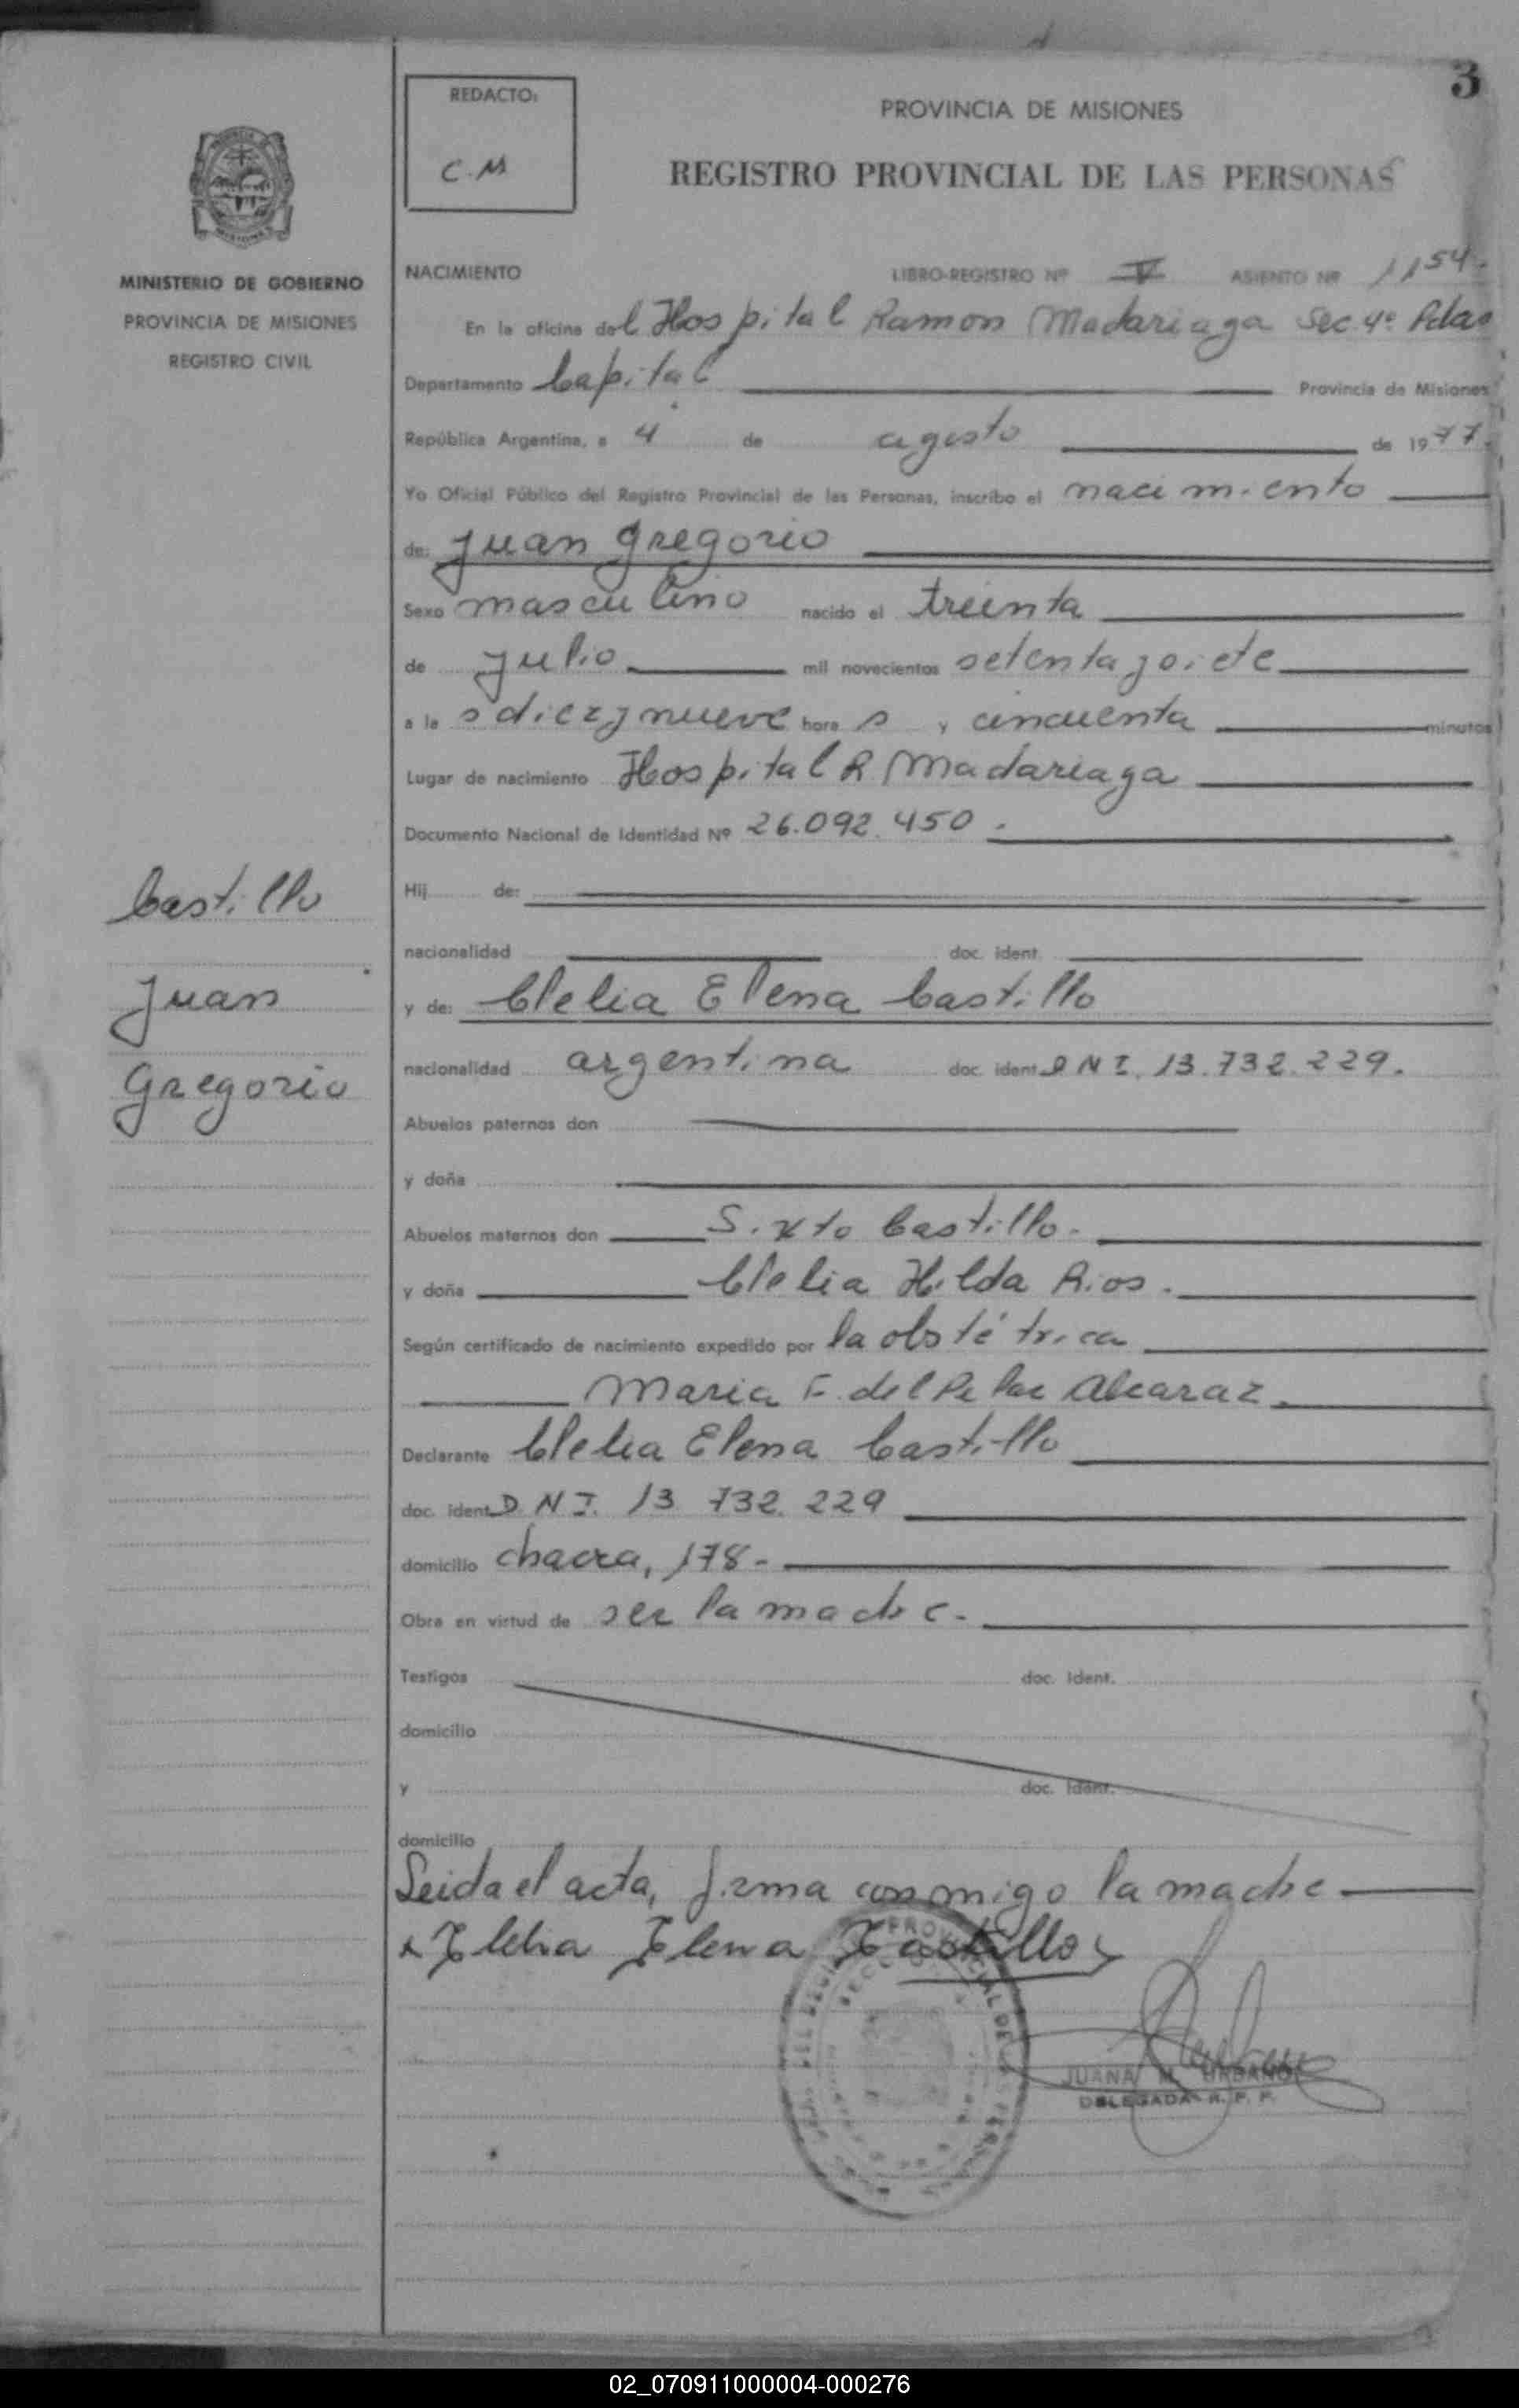 3
REDACTO:
C.M
PROVINCIA DE MISIONES
REGISTRO PROVINCIAL DE LAS PERSONAS
MINISTERIO DE GOBIERNO
PROVINCIA DE MISIONES
REGISTRO CIVIL
NACIMIENTO LIBRO-REGISTRO Nº V ASIENTO Nº 1154-
En la oficina del Hospital Ramon Madariaga Sec. 4º Pdas
Departamento Capital Provincia de Misiones
República Argentina, a 4 de agosto de 1977.
Yo Oficial Público del Registro Provincial de las Personas, inscribo el nacimiento
de: Juan Gregorio
Sexo masculino nacido el treinta
de julio mil novecientos setenta y siete
a las diez y nueve horas y cincuenta minutos
Lugar de nacimiento Hospital R. Madariaga
Documento Nacional de Identidad Nº 26.092.450.
Castillo
Juan
Gregorio
Hij de:
nacionalidad doc. ident.
y de: Clelia Elena Castillo
nacionalidad argentina doc. ident. D N I. 13.732.229.
Abuelos paternos don
y doña
Abuelos maternos don Sixto Castillo.
y doña Clelia Hilda Rios.
Según certificado de nacimiento expedido por la obstétrica
Maria F. del Pilar Alcaraz.
Declarante Clelia Elena Castillo
doc. ident. D. N I. 13 732. 229
domicilio chacra, 178-
Obra en virtud de ser la madre.
Testigos doc. ident.
domicilio
y doc. ident.
domicilio
Leida el acta, firma conmigo la madre
x Clelia Elena Castillo
PROVINCIAL DE LAS PERSONAS
JUANA M. URBANO
DELEGADA R. P. P.
02_070911000004-000276